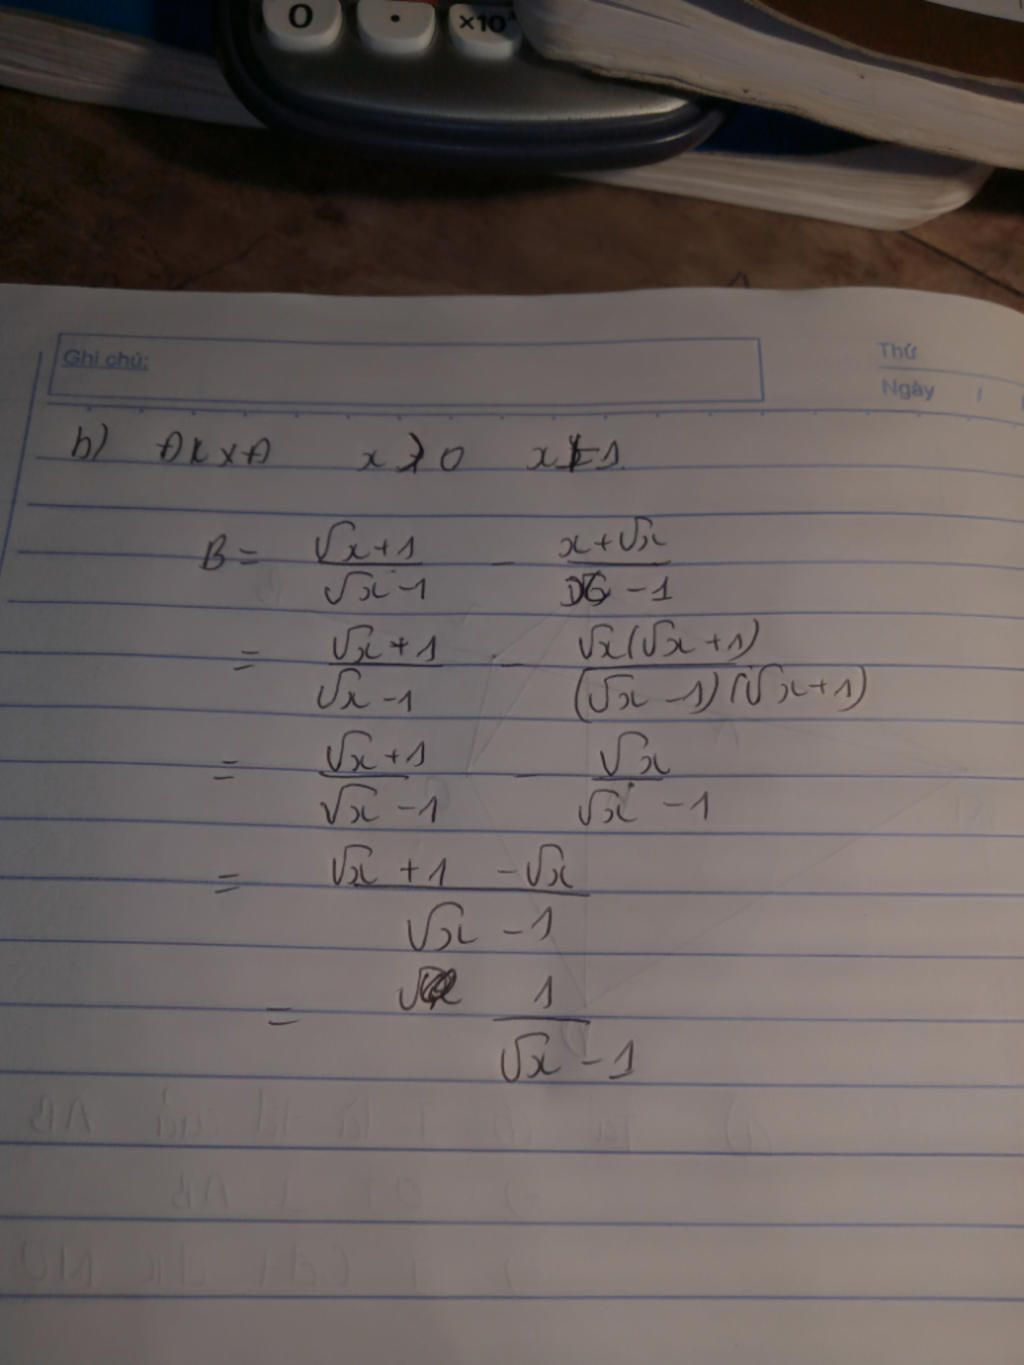 0 · ×10ˣ
Ghi chú:
Thứ
Ngày / /
b) ĐKXĐ x ≥ 0 x ≠ 1
B = (√x + 1)/(√x - 1) - (x + √x)/(x - 1)
= (√x + 1)/(√x - 1) - √x(√x + 1)/((√x - 1)(√x + 1))
= (√x + 1)/(√x - 1) - √x/(√x - 1)
= (√x + 1 - √x)/(√x - 1)
= 1/(√x - 1)